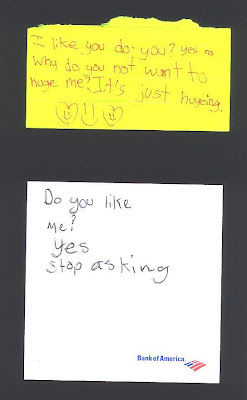 I like you do you? yes no
why do you not wunt to
huge me? It's just hugeing.
Do you like
me?
yes
stop asking
Bank of America